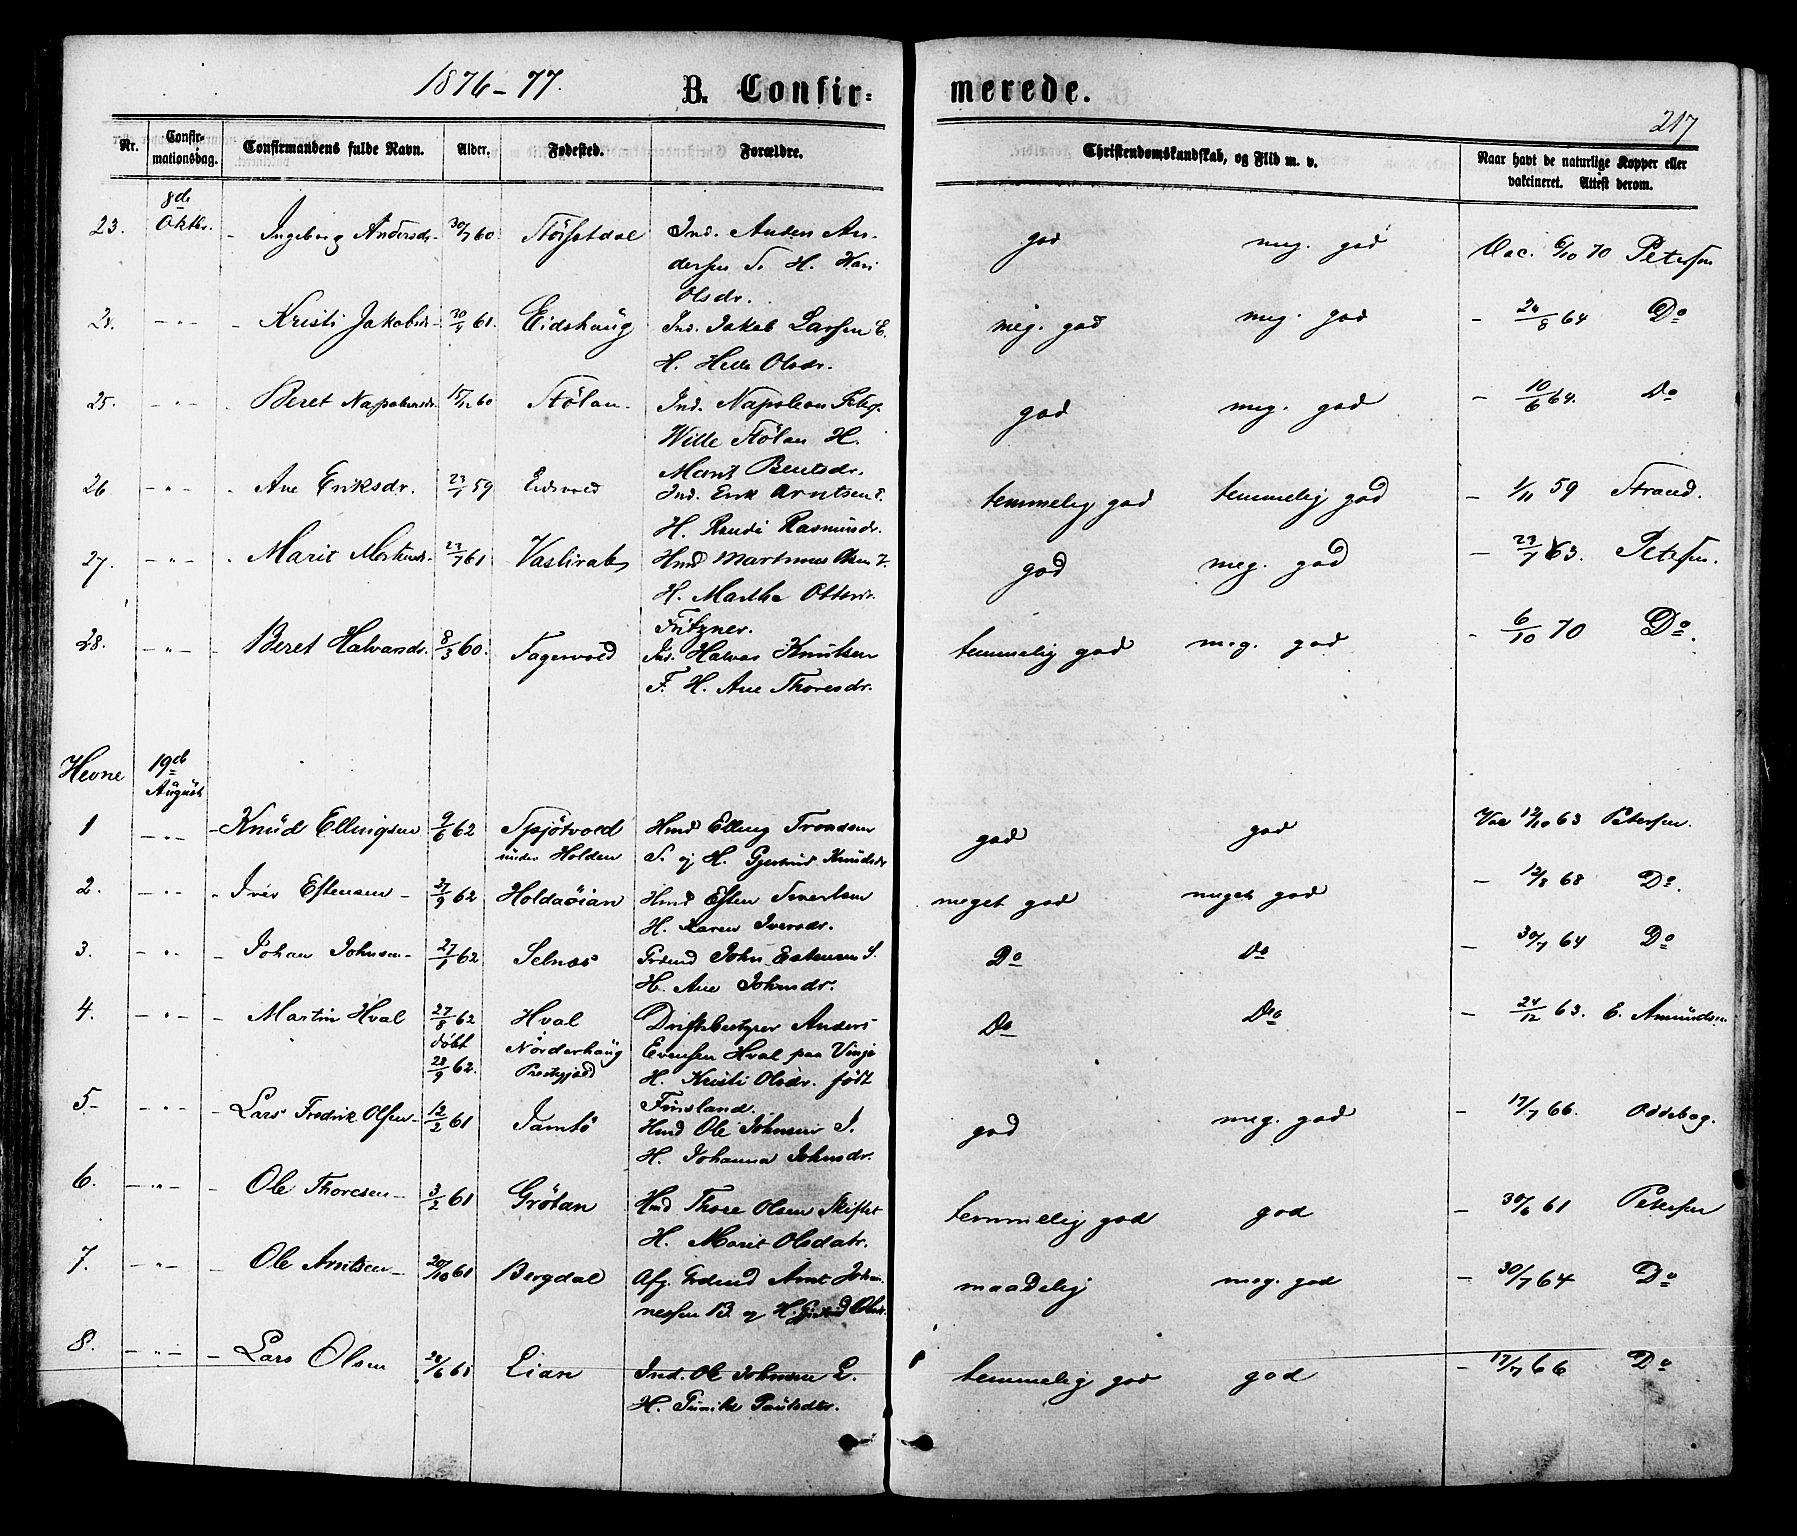 1876-77. B. Confirmerede.
217
Nr. Confirmationsdag. Confirmandens fulde Navn. Alder. Fødested. Forældre. Christendomskundskab, og Flid m. v. Naar havt de naturlige Kopper eller vaccineret. Attest derom.
8de Oktbr.
23. - Ingeborg Andersdr. 30/7 60 Ind. Anders An- god meg. god Vac. 6/10 70 Petersen
dersen S. H. Kari
Olsdr.
24. - " - - Kristi Jakobsdr. 61. Eidshaug Ind. Jakob Larsen E. meg. god meg. god - 24/8 64 Do
H. Olsdr.
25. - " - - Beret Napoleonsdr. 15/12 60 Stølan Ind. Napoleon god meg. god - 10/6 64. Do
Wille Stølan H.
Marit Bentsdr.
26 - " - - Ane Eriksdr. 59 Eidsvold Ind. Erik Arntsen E. temmelig god temmelig god - 1/11 59 Strand.
H. Randi Rasmusdr.
27. - " - - Marit 23/7 61 Hmd Martinus Olsen V. god meg. god - 23/7 63. Petersen.
H. Martha Ottersdr.
Fritzner.
28. - " - Beret Halvarsdr. 8/3 60. Fagervold Ind. Halvar Knutsen temmelig god meg. god - 6/10 70 Do.
F. H. Ane Thoresdr.
Hevne 19de August
1 - " - - Knud Ellingsen 9/6 62 Spjøtvold Hmd Elling Trondsen god god Vac 12/10 63 Petersen.
under Holden S. og H. Gjertrud Knudsdr
2. - " - - Iver Estensen - 27/9 62 Holdaøian Hmd Esten Sivertsen meget god meget god - 12/8 68 Do.
H. Karen Iversdr.
3. - " - - Johan Johnsen - 27/1 62 Selnæs Grdmd John Estensen S. Do Do - 30/7 64 Do
H. Ane Johnsdr.
4. - " - - Martin Hval 27/8 62 Hval Driftsbestyrer Anders Do Do - 24/12 63. E. Amundsen
døbt Nørderhaug Evensen Hval paa Vinje
28/9 62. Prestegjæld H. Kristi Olsdr. født
Finsland.
5- - " - - Lars Fredrik Olsen - 12/2 61 Tamsø Hmd Ole Johnsen god meg. god - 17/7 66. Oddebog.
H. Johanna Johnsdr.
6. - " - - Ole Thoresen - 3/2 61 Grøtan Hmd Thore Olsen Skiftet temmelig god god - 30/6 61 Petersen
H. Marit Olsdatr.
7. - " - - Ole Arntsen - 20/10 61 Bergdal Afg. Grdmd Arnt Johan- maadelig meg. god - 30/7 64 Do
nessen B. og H.
8. - " - - Lars Olsen 61 Lian Ind. Ole Johnsen L. temmelig god god - 17/7 66 Do
H. Paulsdtr.